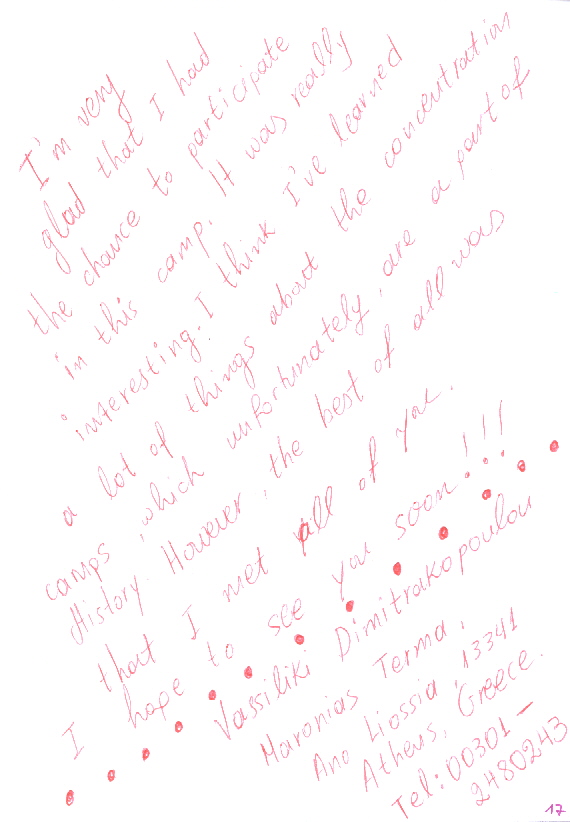 I'm very
glad that I had
the chance to participate
in this camp. It was really
interesting. I think I've learned
a lot of things about the concentration
camps, which unfortunately, are a part of
History. However, the best of all was
that I met all of you.
I hope to see you soon!!!
Vassiliki Dimitrakopoulou
Maronias Terma,
Ano Liossia, 13341
Athens, Greece.
Tel: 00301 –
2480243
17